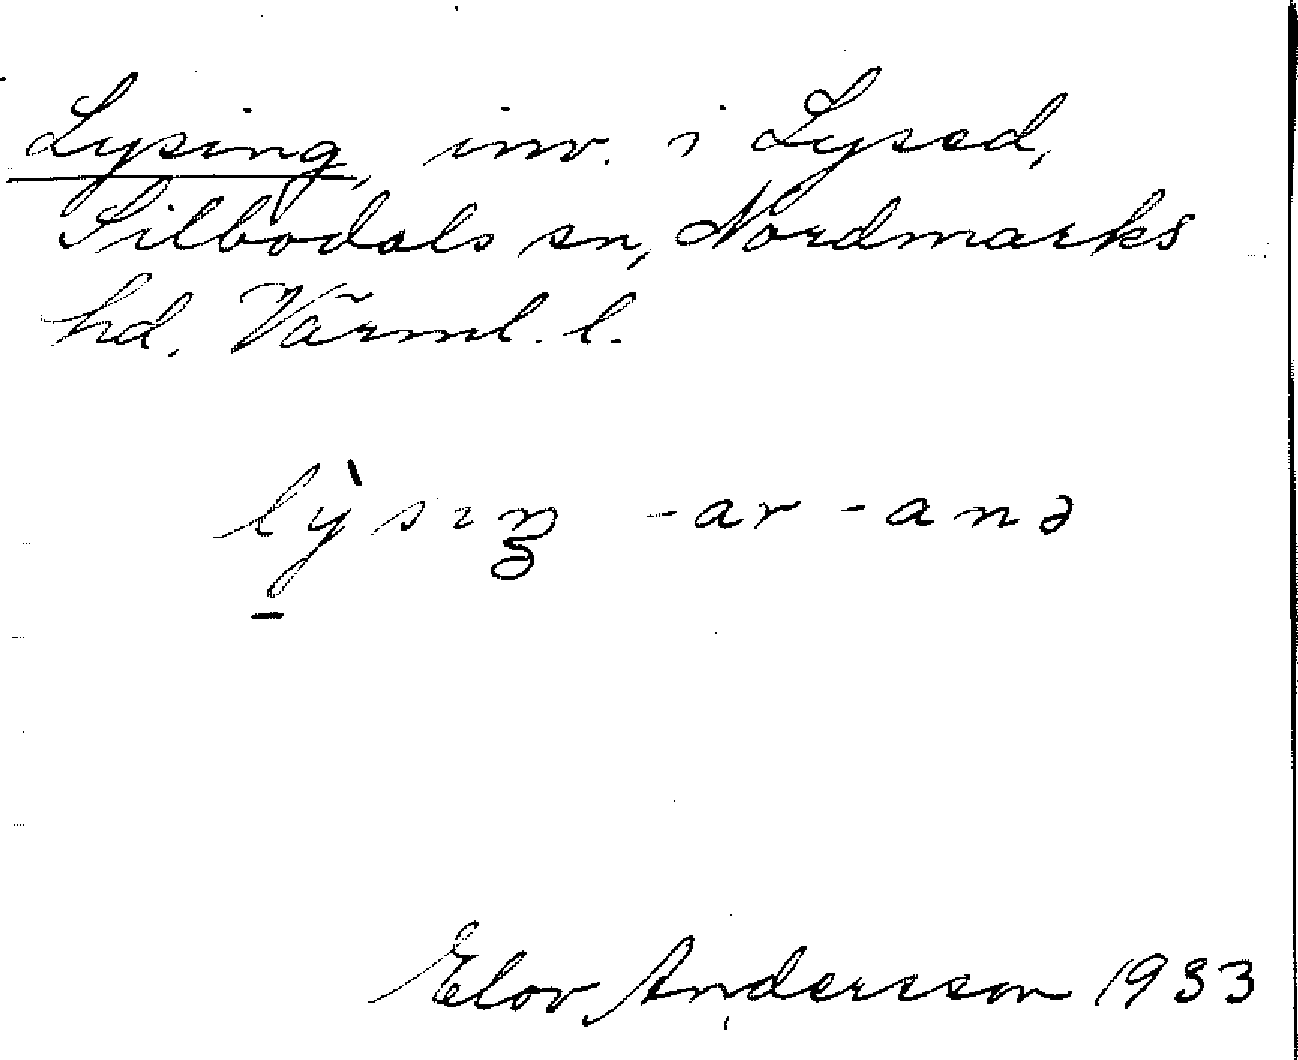 Lysing, inv. i Lysed,
Silbodals sn, Nordmarks
hd. Värml. l.
lỳ̠sıŋ -ar -anə
Elov Andersson 1933